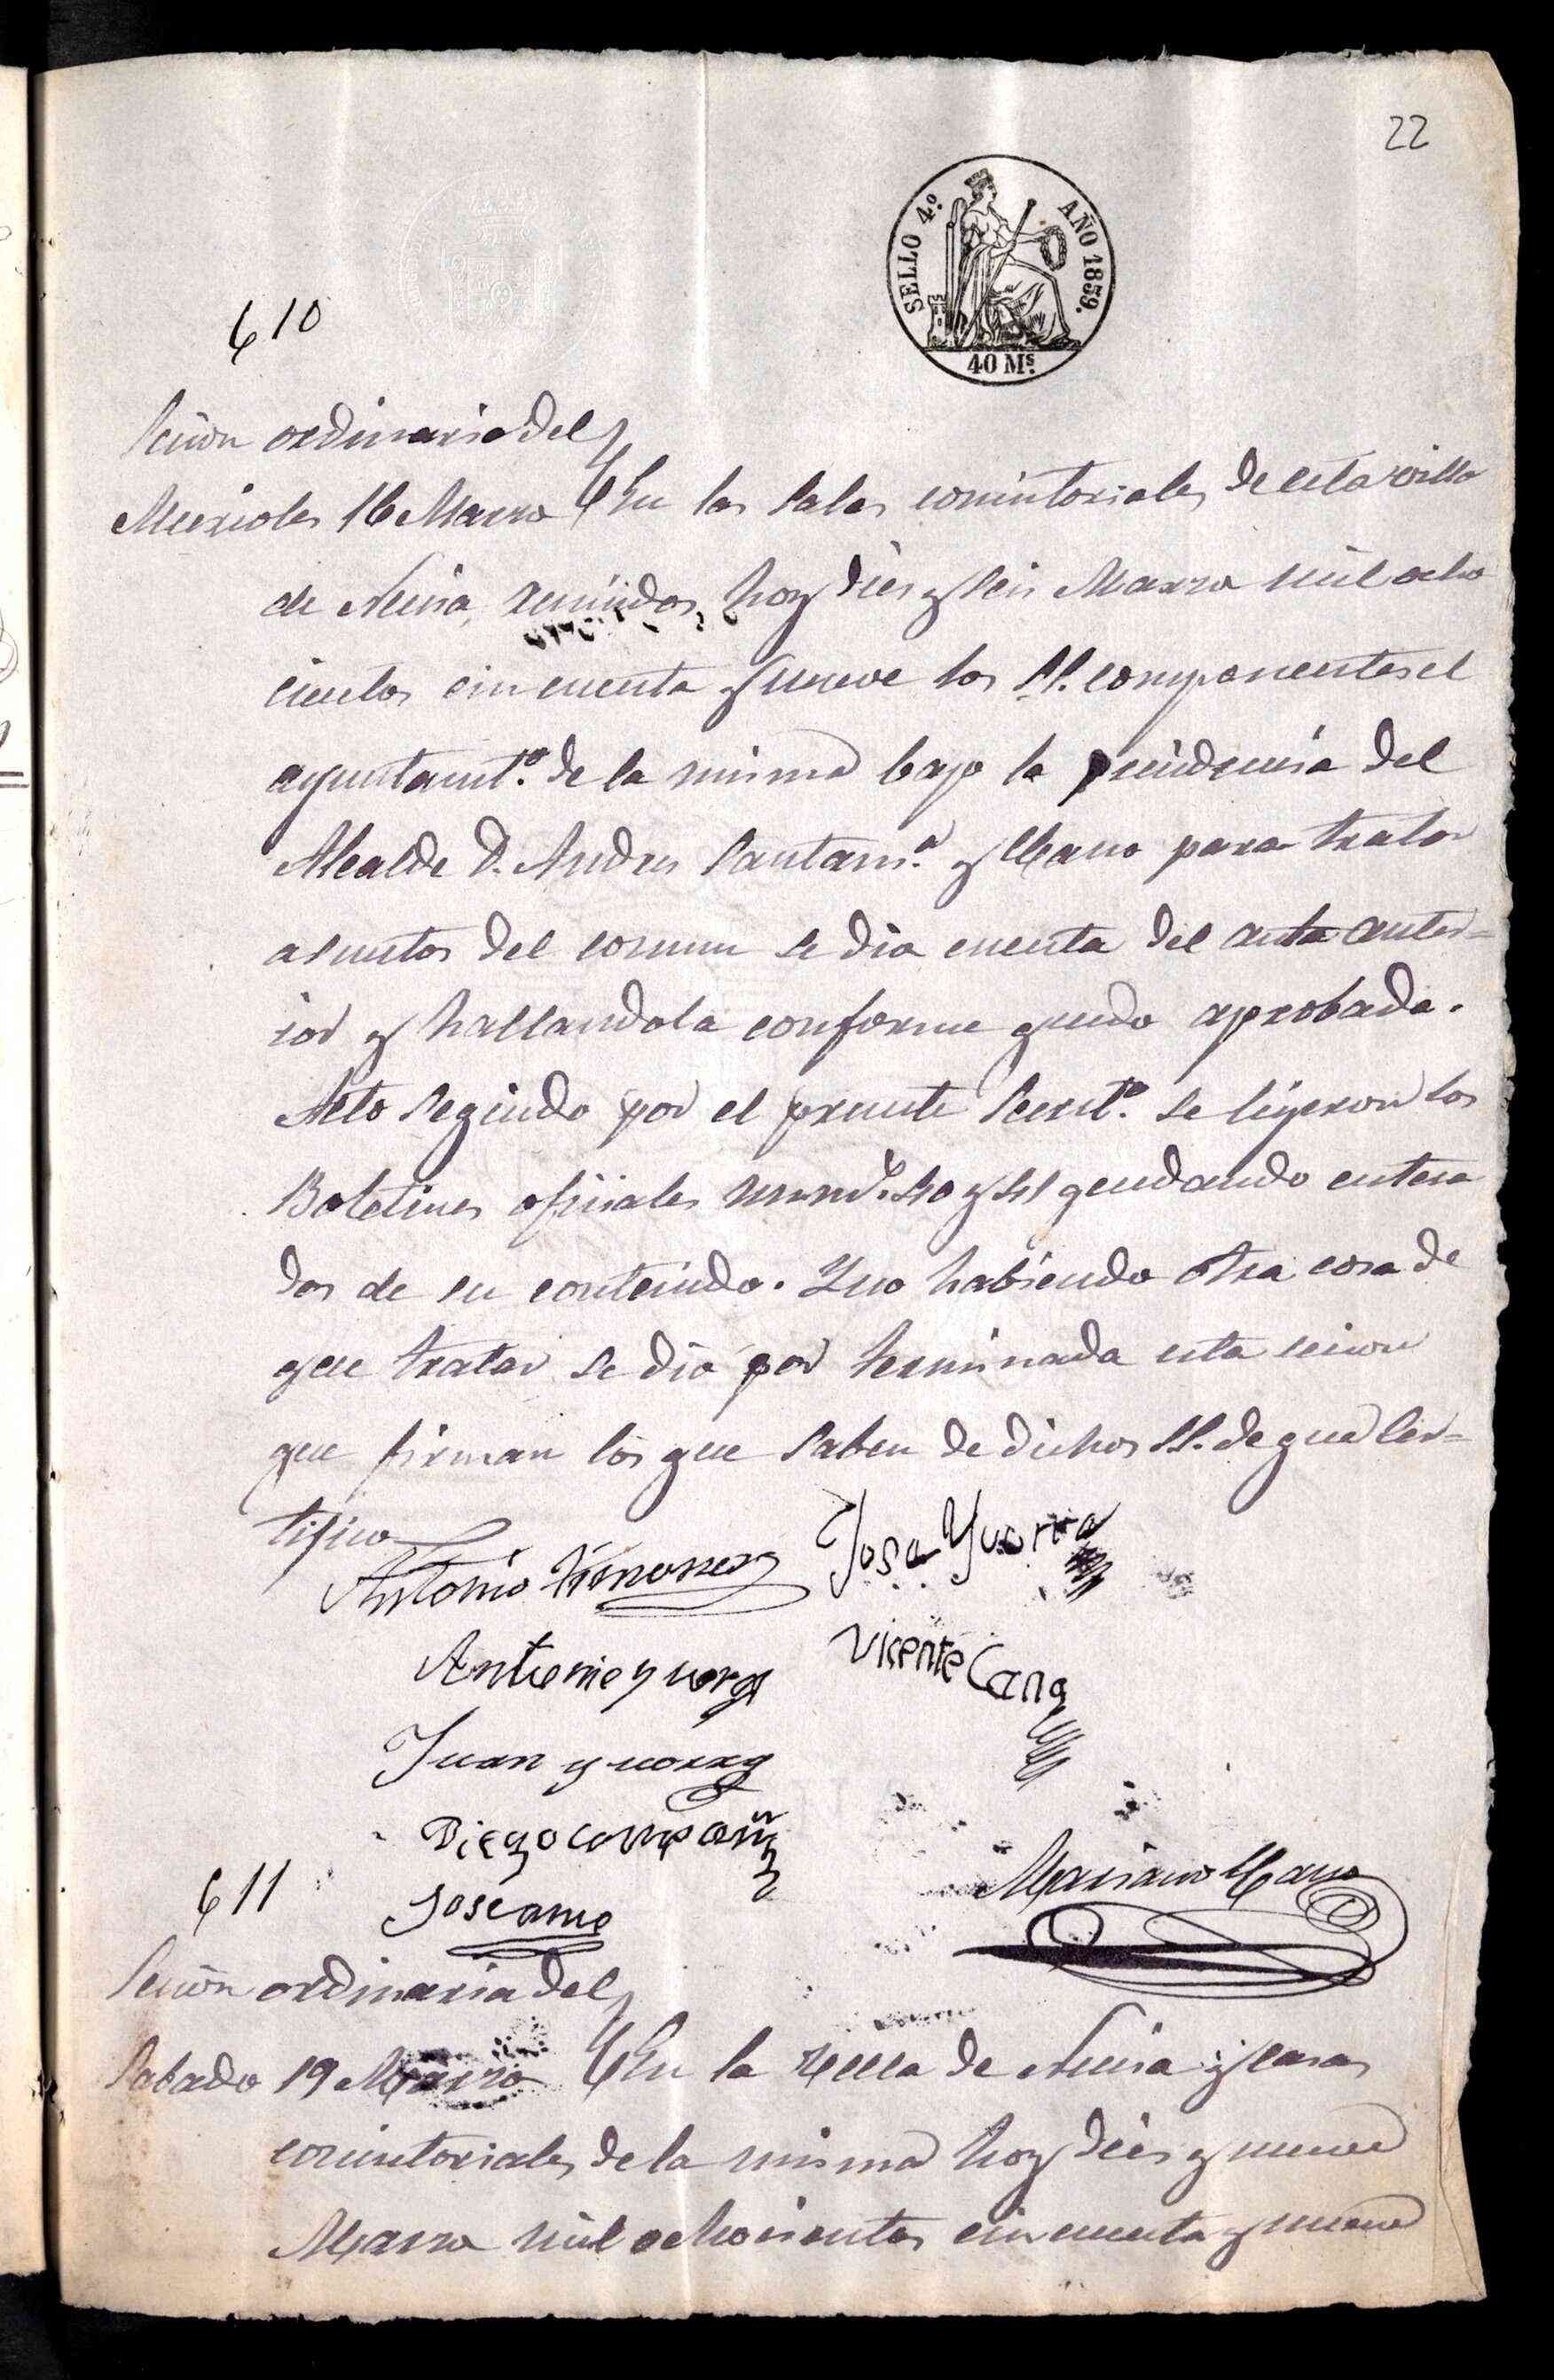 22
SELLO 4º. AÑO 1859.
40 Ms.
610
Secion ordinaria del
Miercoles 16 Marzo En las Salas consistoriales de esta villa
de Nucia, reunidos, hoy dies y seis Marzo mil ocho
cientos cincuenta y nueve los SS. componentes el
ayuntamtº. de la misma bajo la presidencia del
Alcalde D. Andres Santamª. y Llano para tratar
asuntos del comun se dio cuenta del acta anter=
ior y hallandola conforme quedo aprobada.
Acto seguido por el presente Secretº. se ligeron los
Boletines oficiales numrs. 40 y 41 quedando entera
dos de su contenido. Y no habiendo otra cosa de
que tratar se dio por terminada esta secion
que firman los que saben de dichos SS. de que Cer=
tifico
Antonio Jose Yvorra
Antonio yvorra Vicente Cano
Juan yvorra
Diego company
Jose amo Mariano Llano
611
Secion ordinaria del
Sabado 19 Marzo En la Villa de Nucia y casas
consistoriales de la misma hoy dies y nueve
Marzo mil ochocientos cincuenta y nueve